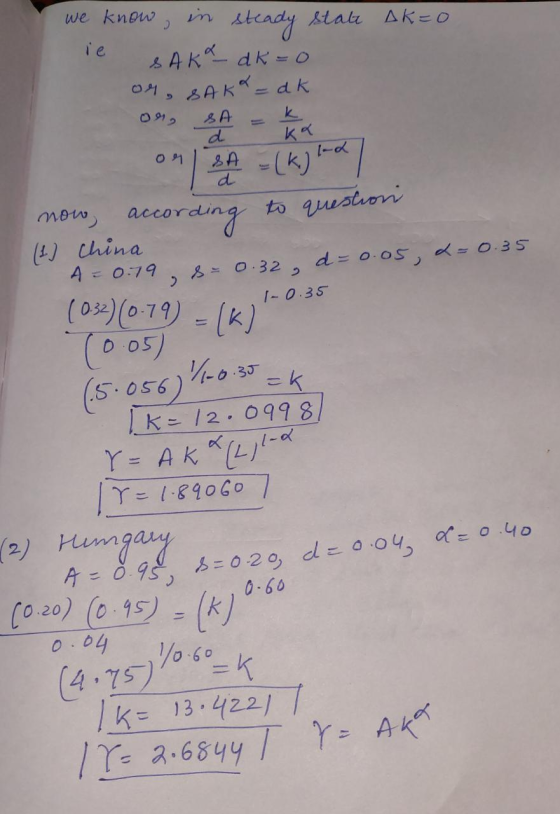 we know, in steady state ΔK=0
ie
sAK^α - dK = 0
or, sAK^α = dK
or, sA/d = k/k^α
or sA/d = (K)^1-α
now, according to question
(1.) China
A = 0.79, s = 0.32, d = 0.05, α = 0.35
(0.32)(0.79)/(0.05) = (K)^1-0.35
(5.056)^1/1-0.35 = K
K = 12.0998
Y = AK^α(L)^1-α
Y = 1.89060
(2) Hungary
A = 0.95, s = 0.20, d = 0.04, α = 0.40
(0.20) (0.95)/0.04 = (K)^0.60
(4.75)^1/0.60 = K
K = 13.4221
Y = 2.6844 Y = AK^α